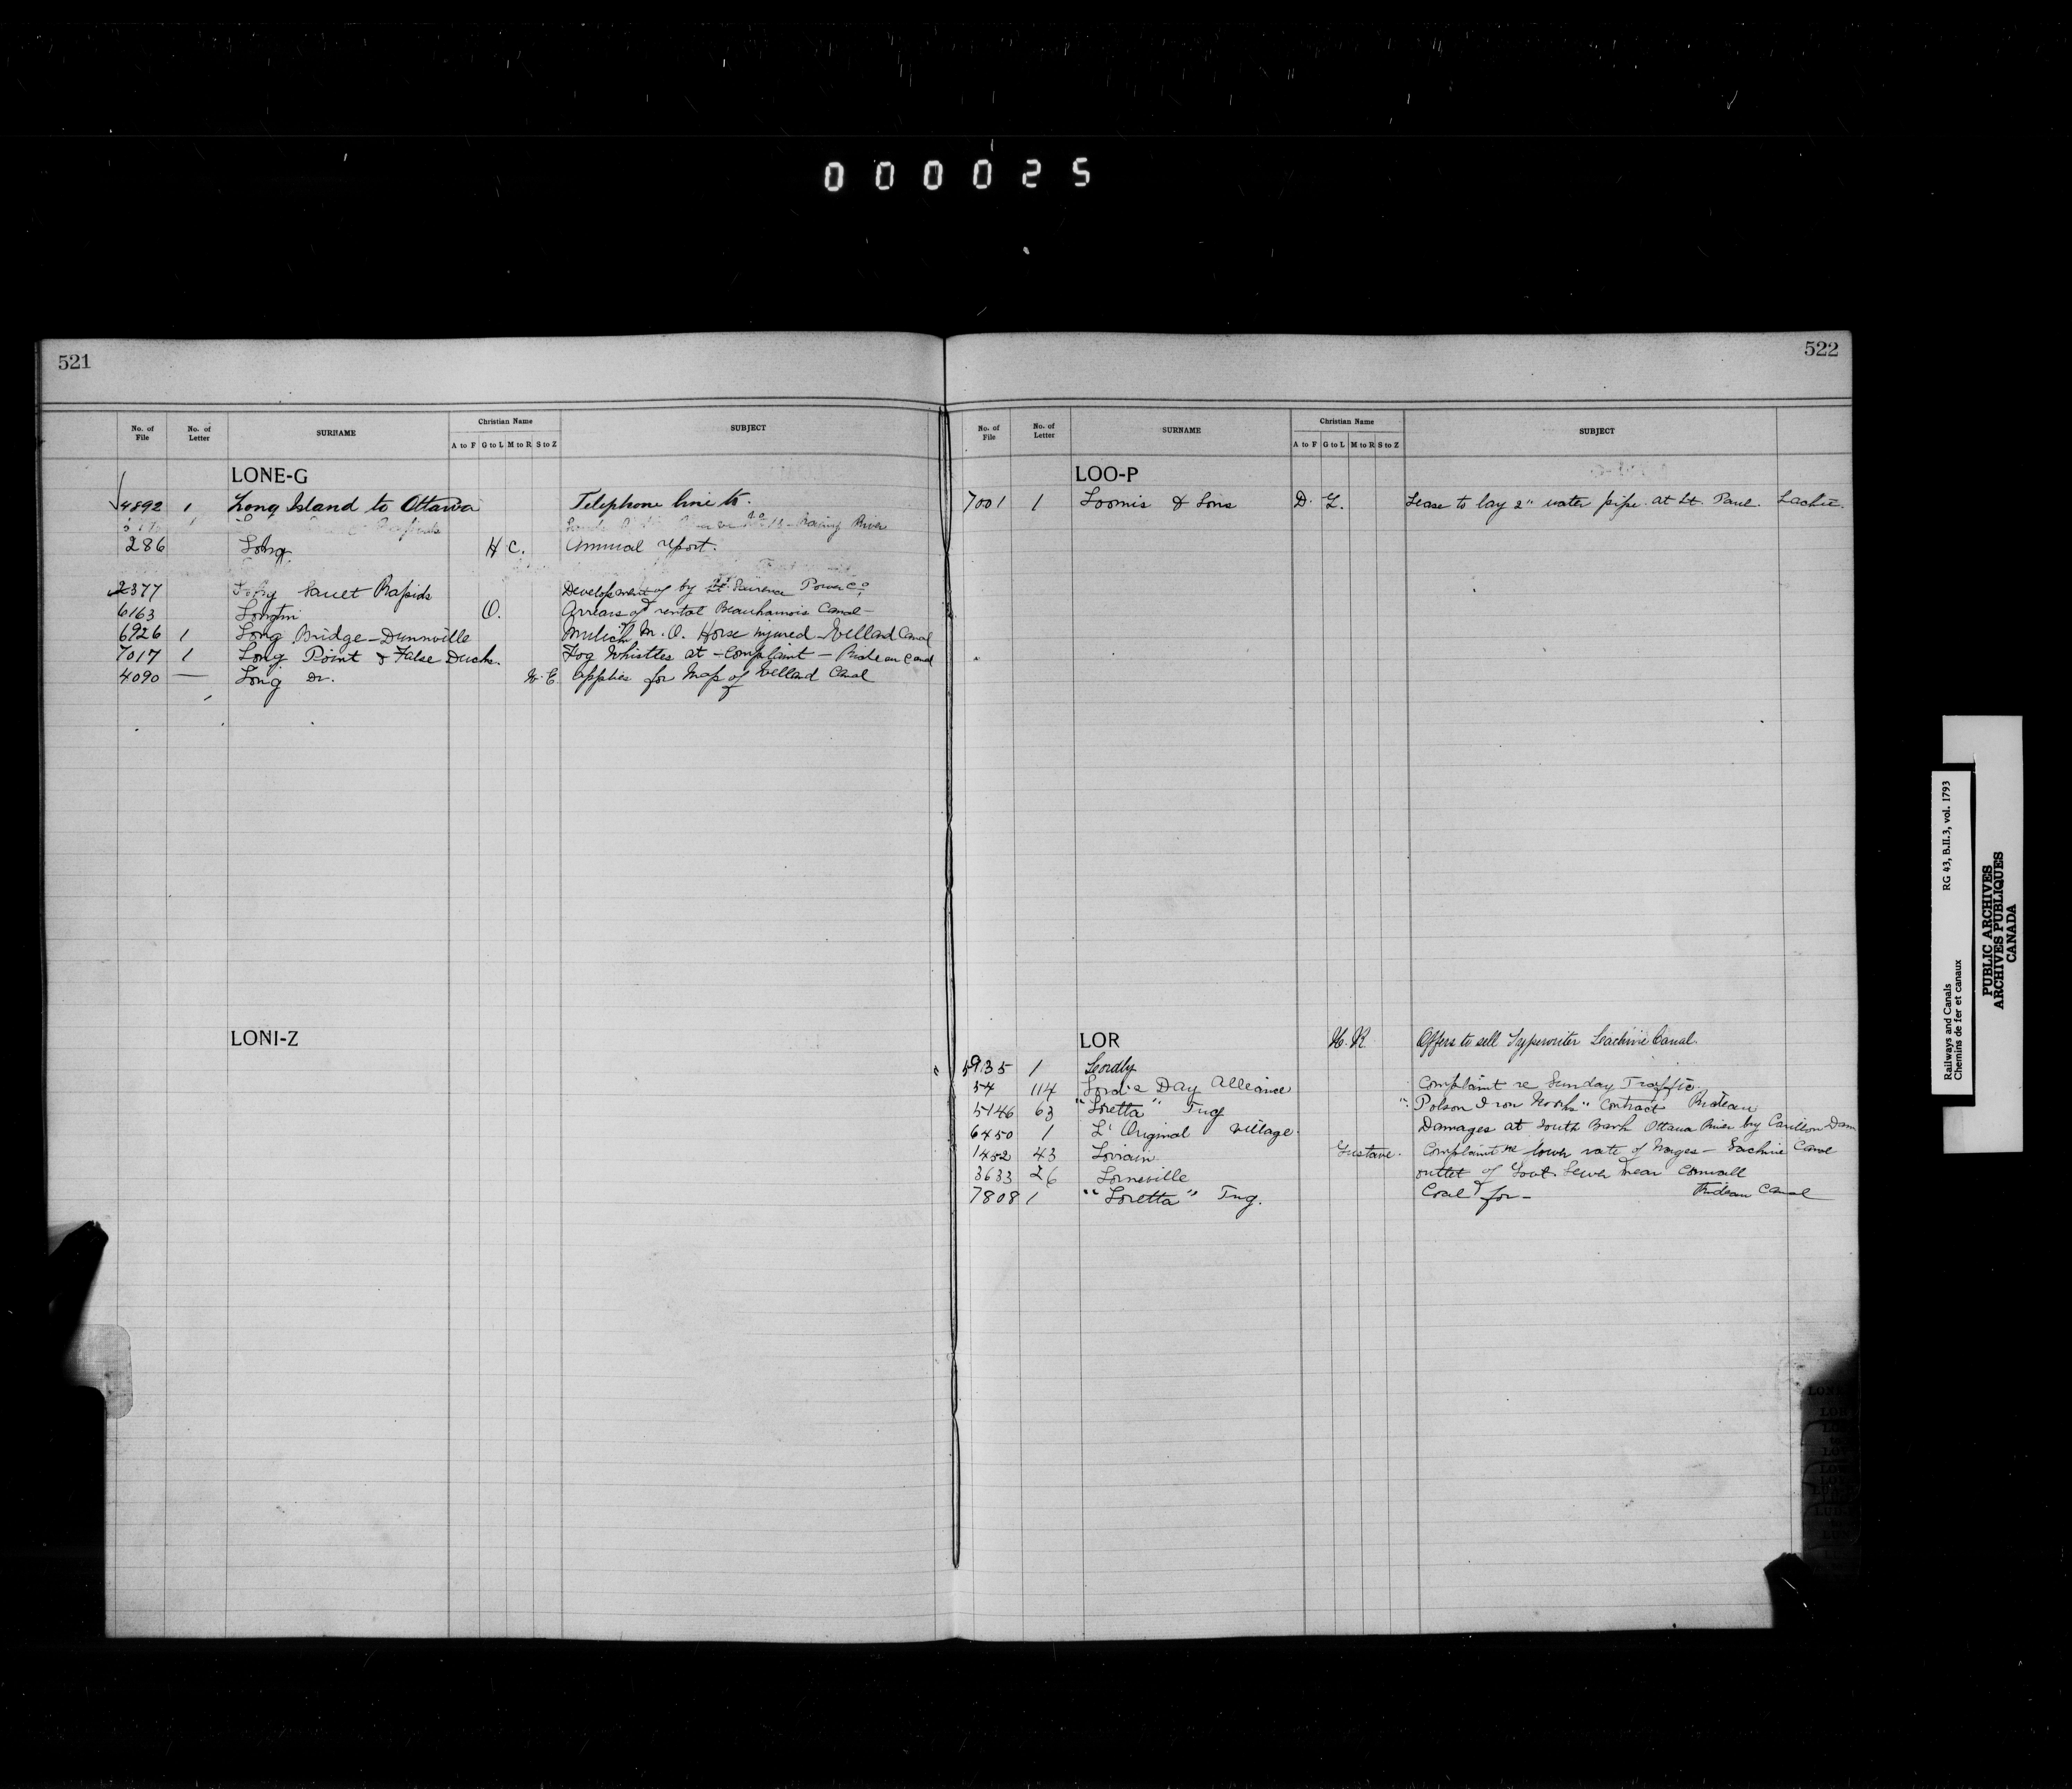 000025
521
No. of File No. of Letter SURNAME Christian Name A to F G to L M to R S to Z SUBJECT
LONE-G
4892 1 Long Island to Ottawa Telephone line to.
Rapids River
286 Long H C. Annual report.
2377 Long Sault Rapids Development of by St. Lawrence Power Co
6163 Longtin O. Arrears of rental Beauharnois Canal-
6926 1 Long Bridge-Dunnville M. O. Horse injured-Welland Canal
7017 1 Long Point & False Ducks. Fog Whistles at -complaint - Rideau Canal
4090 — Long Dr. W. E. applies for Map of Welland Canal
LONI-Z
522
No. of File No. of Letter SURNAME Christian Name A to F G to L M to R S to Z SUBJECT
LOO-P
7001 1 Loomis & Sons D. G. Lease to lay 2" water pipe. at St. Paul. Lachie.
LOR H. R. Offers to sell Typewriter Lachine Canal.
5935 1 Lordly
54 114 Lord's Day Alliance Complaint re Sunday Traffic.
5146 63 "Loretta" Tug "Polson Iron Works" Contract Rideau
6450 1 L'Original Village. Damages at South Bank Ottawa River by Carillon Dam
1452 43 Lorrain Gustave. Complaint re lower rate of Wages - Lachine Canal
3633 26 Lorneville outlet of Govt. Sewer near Cornwall
7808 1 "Loretta" Tug. Coal for- Rideau Canal
Railways and Canals RG 43, B.II.3, vol. 1793
Chemins de fer et canaux
PUBLIC ARCHIVES
ARCHIVES PUBLIQUES
CANADA